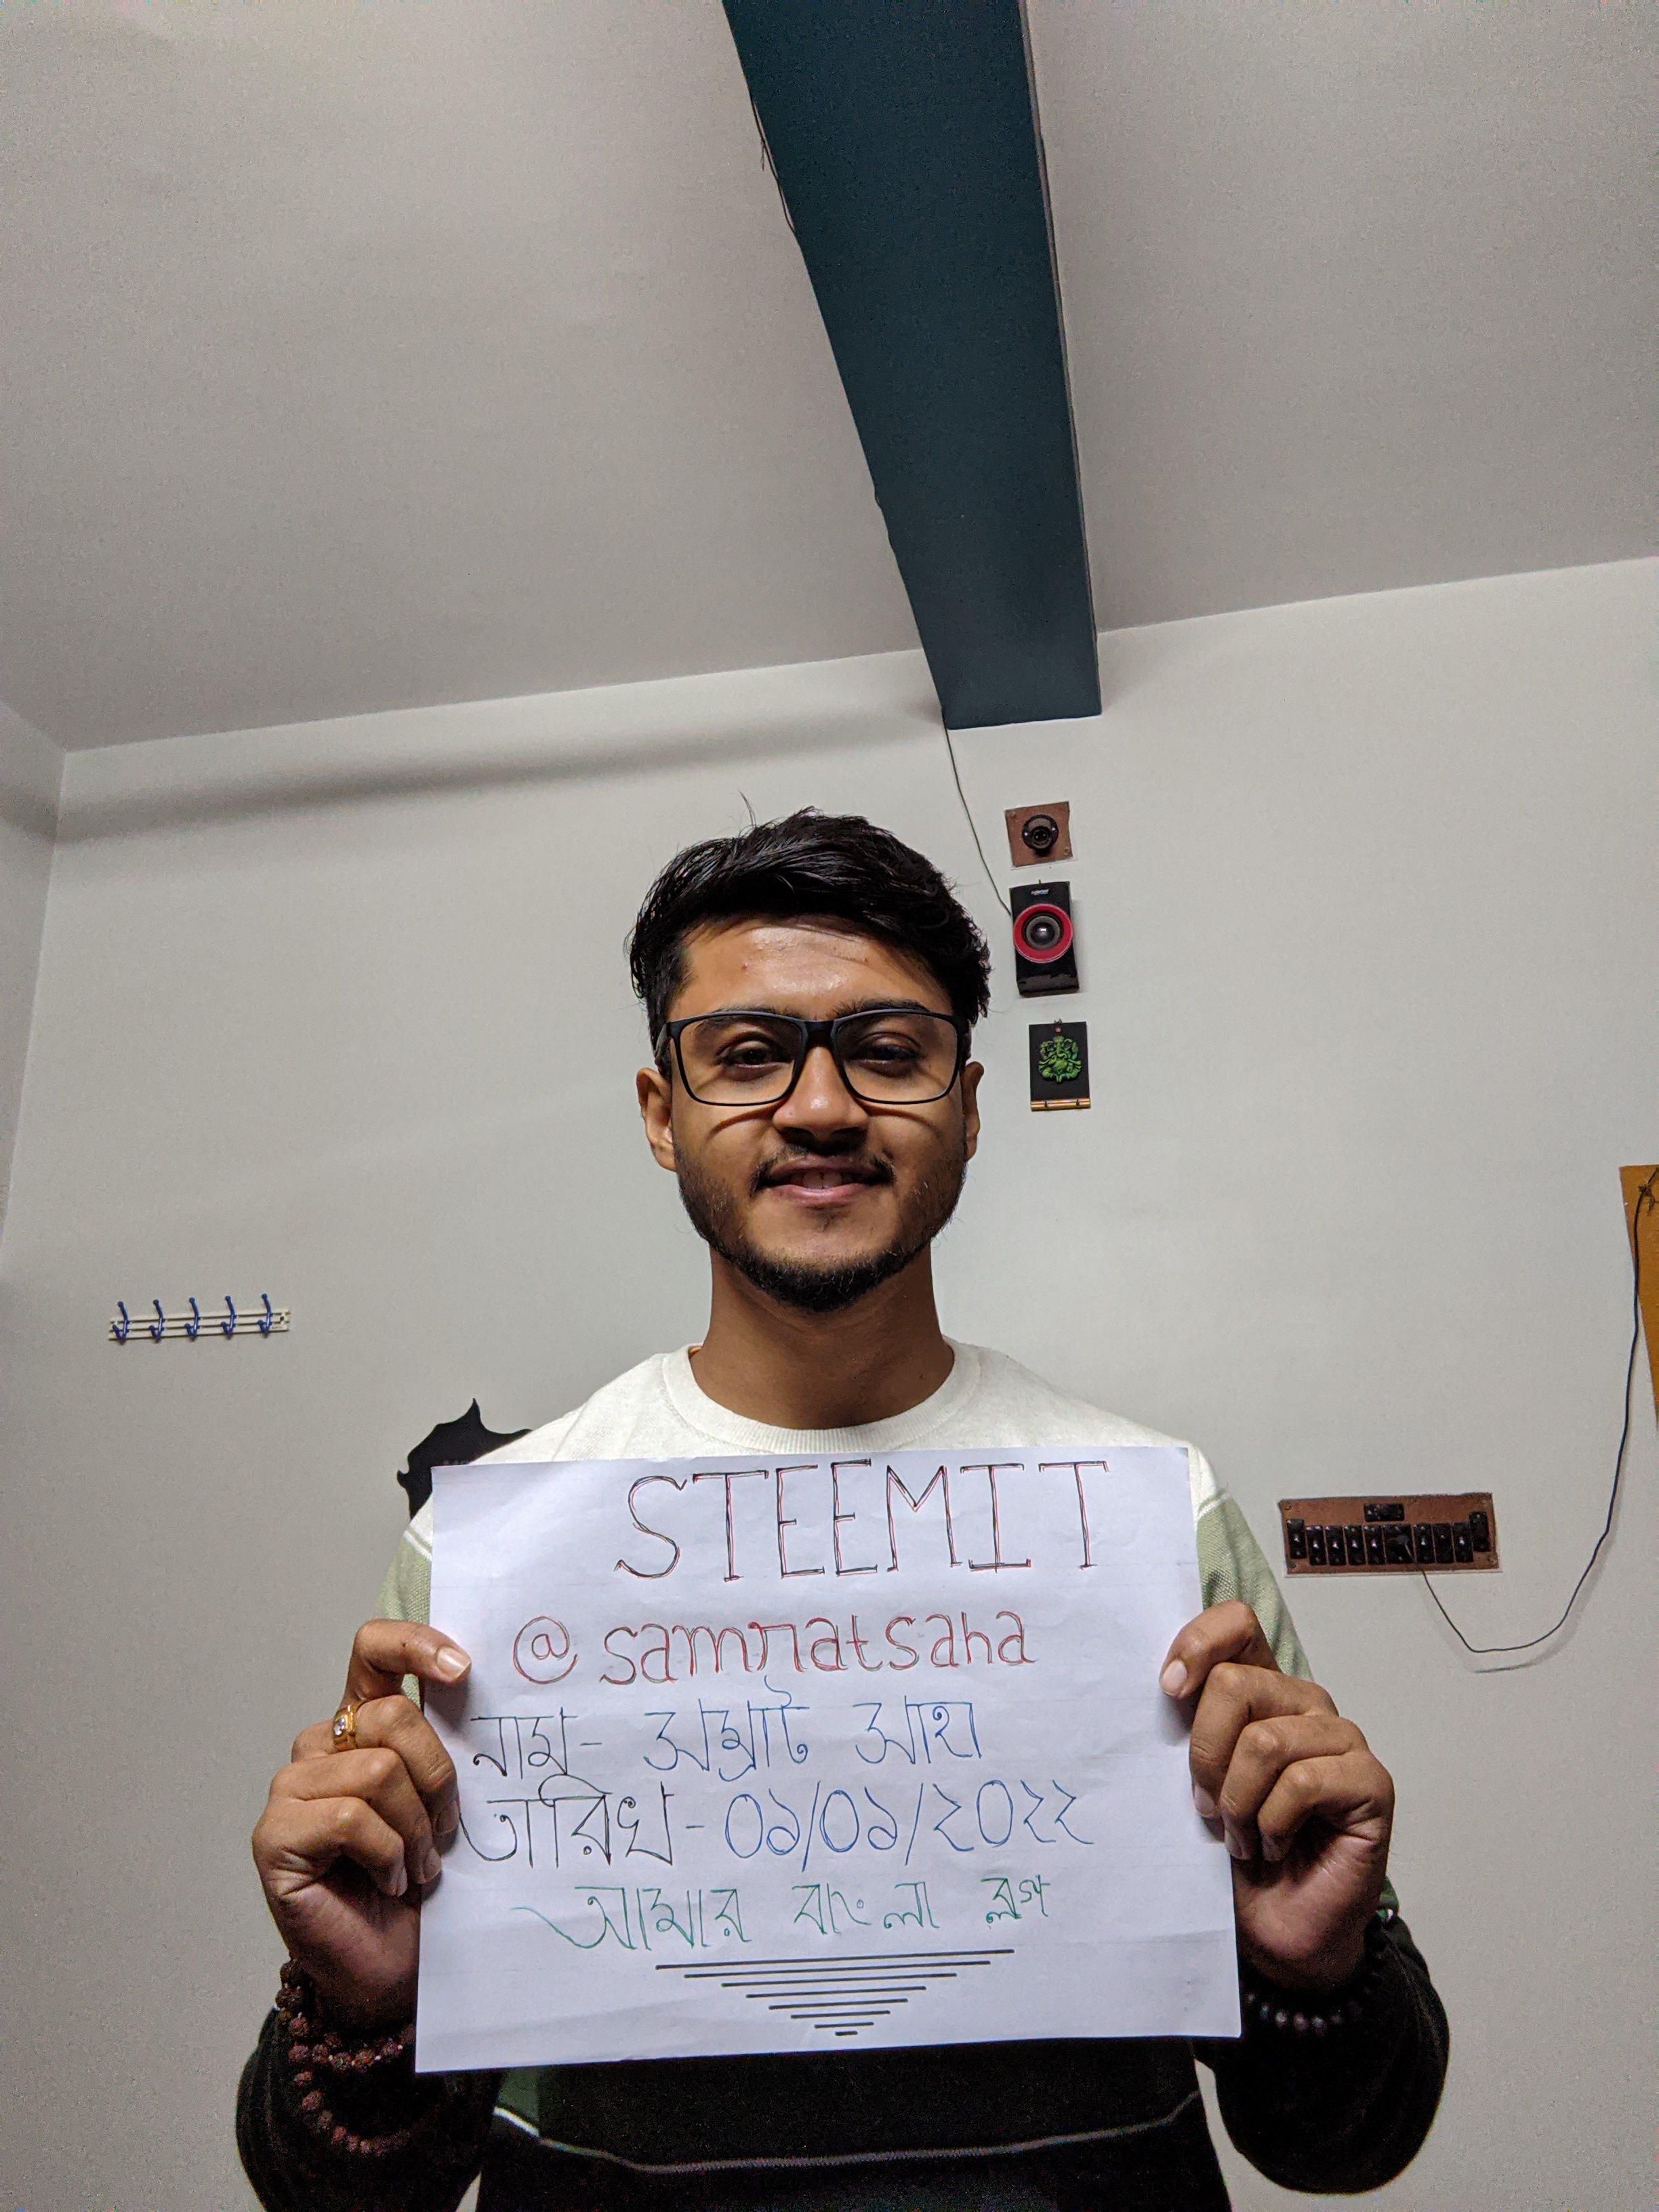 STEEMIT
@samratsaha
নাম- সম্রাট সাহা
তারিখ- ০১/০১/২০২২
আমার বাংলা ব্লগ